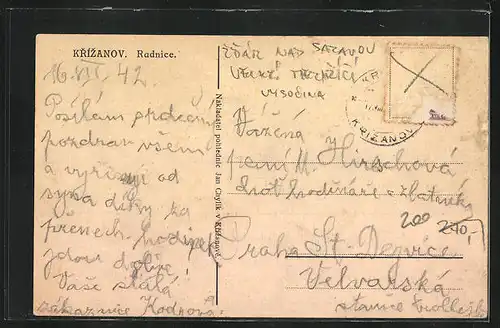 KŘÍŽANOV. Radnice.
16. VII. 42
Posílám srdečný
pozdrav všem
a vyřizuji od
syna díky za
hodinek
jdou dobře!
Vaše stálá
zákaznice
Nakladatel pohlednic Jan Chylík v Křižanově.
ŽĎÁR NAD SÁZAVOU
VELKÉ MEZIŘÍČÍ
VYSOČINA
KŘIŽANOV
Vážená
paní M. Hirschová
choť hodináře a zlatníka
200 240,-
Praha St. Dejvice
Velvarská
stanice trolleyb